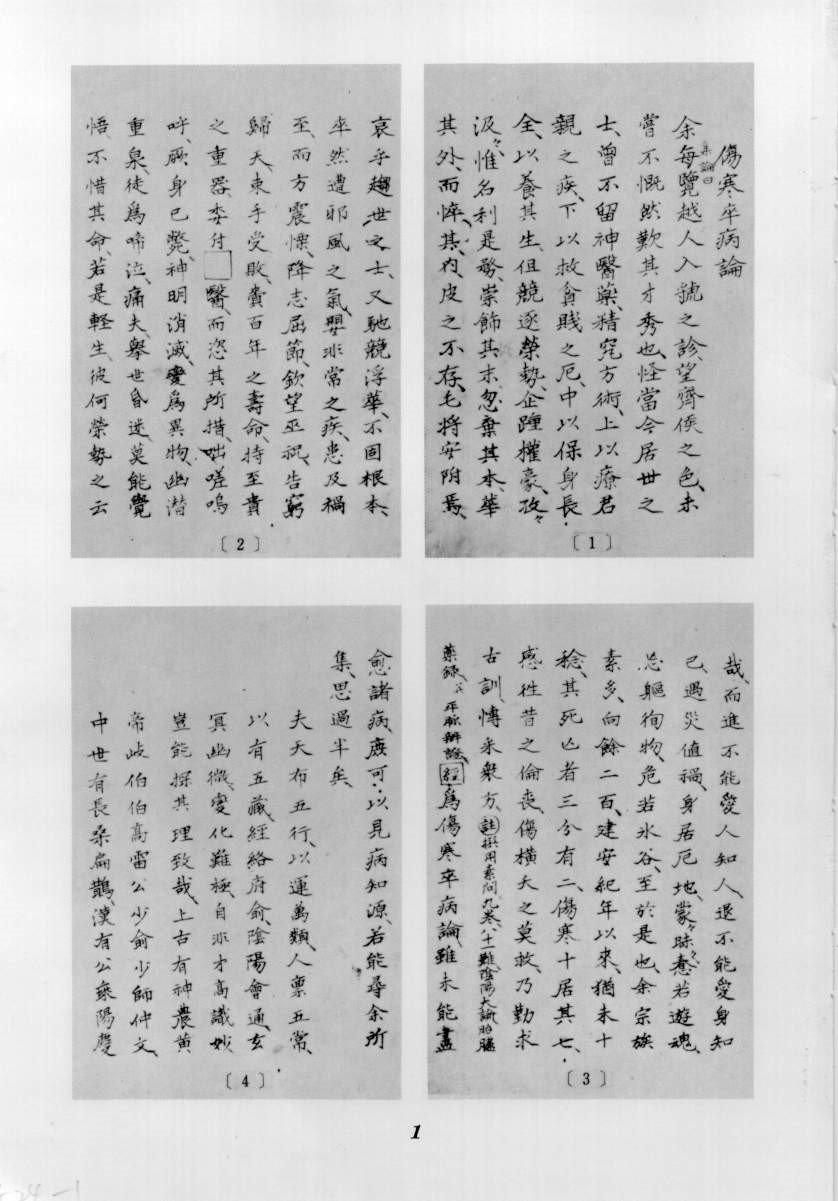 傷寒卒病論
集論曰
余每覽越人入虢之診、望齊侯之色、未
嘗不慨然歎其才秀也、怪當今居世之
士、曾不留神醫藥、精究方術、上以療君
親之疾、下以救貧賤之厄、中以保身長
全、以養其生、但競逐榮勢、企踵權豪、孜々
汲々惟名利是務、崇飾其末、忽棄其本、華
其外、而悴其內、皮之不存、毛將安附焉、
〔1〕
哀乎趨世之士、又馳競浮華、不固根本、
卒然遭邪風之氣、嬰非常之疾、患及禍
至、而方震慄、降志屈節、欽望巫祝、告窮
歸天、束手受敗、賫百年之壽命、持至貴
之重器、委付□醫、而恣其所措、咄嗟嗚
呼、厥身已斃、神明消滅、變爲異物、幽潛
重泉、徒爲啼泣、痛夫舉世昏迷、莫能覺
悟、不惜其命、若是軽生、彼何榮勢之云
〔2〕
哉、而進不能愛人知人、退不能愛身知
己、遇災值禍、身居厄地、蒙々昧々、惷若遊魂、
忘軀徇物、危若冰谷、至於是也、余宗族
素多、向餘二百、建安紀年以來、猶未十
稔、其死亡者三分有二、傷寒十居其七、
感往昔之倫喪、傷橫夭之莫救、乃勤求
古訓、博采衆方、註撰用素問九卷八十一難陰陽大論胎臚
藥録、並平脉辨證、經爲傷寒卒病論、雖未能盡
〔3〕
愈諸病、庶可以見病知源、若能尋余所
集、思過半矣、
夫天布五行、以運萬類、人稟五常、
以有五藏、經絡府俞、陰陽會通、玄
冥幽微、變化難極、自非才高識妙、
豈能探其理致哉、上古有神農黄
帝岐伯伯高雷公少俞少師仲文、
中世有長桑扁鵲、漢有公乘陽慶
〔4〕
1